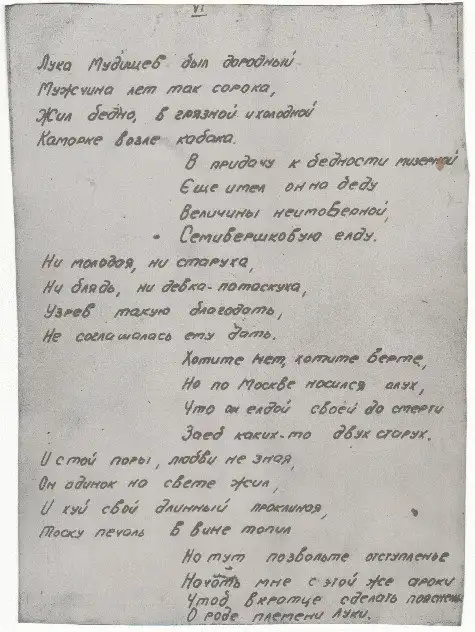 VI
Лука Мудищев был дородный
Мужчина лет так сорока,
Жил бедно, в грязной и холодной
Каморке возле кабака.
В придачу к бедности мизерной
Еще имел он на беду
Величины неимоверной,
Семивершковую елду.
Ни молодая, ни старуха,
Ни блядь, ни девка-потаскуха,
Узрев такую благодать,
Не соглашалась ему дать.
Хотите нет, хотите верте,
Но по Москве носился слух,
Что он елдой своей до смерти
Заеб каких-то двух старух.
И с той поры, любви не зная,
Он одинок на свете жил,
И хуй свой длинный проклиная,
Тоску печаль в вине топил
Но тут позвольте отступленье
Начать мне с этой же строки
Чтоб вкратце сделать
О роде племени Луки.